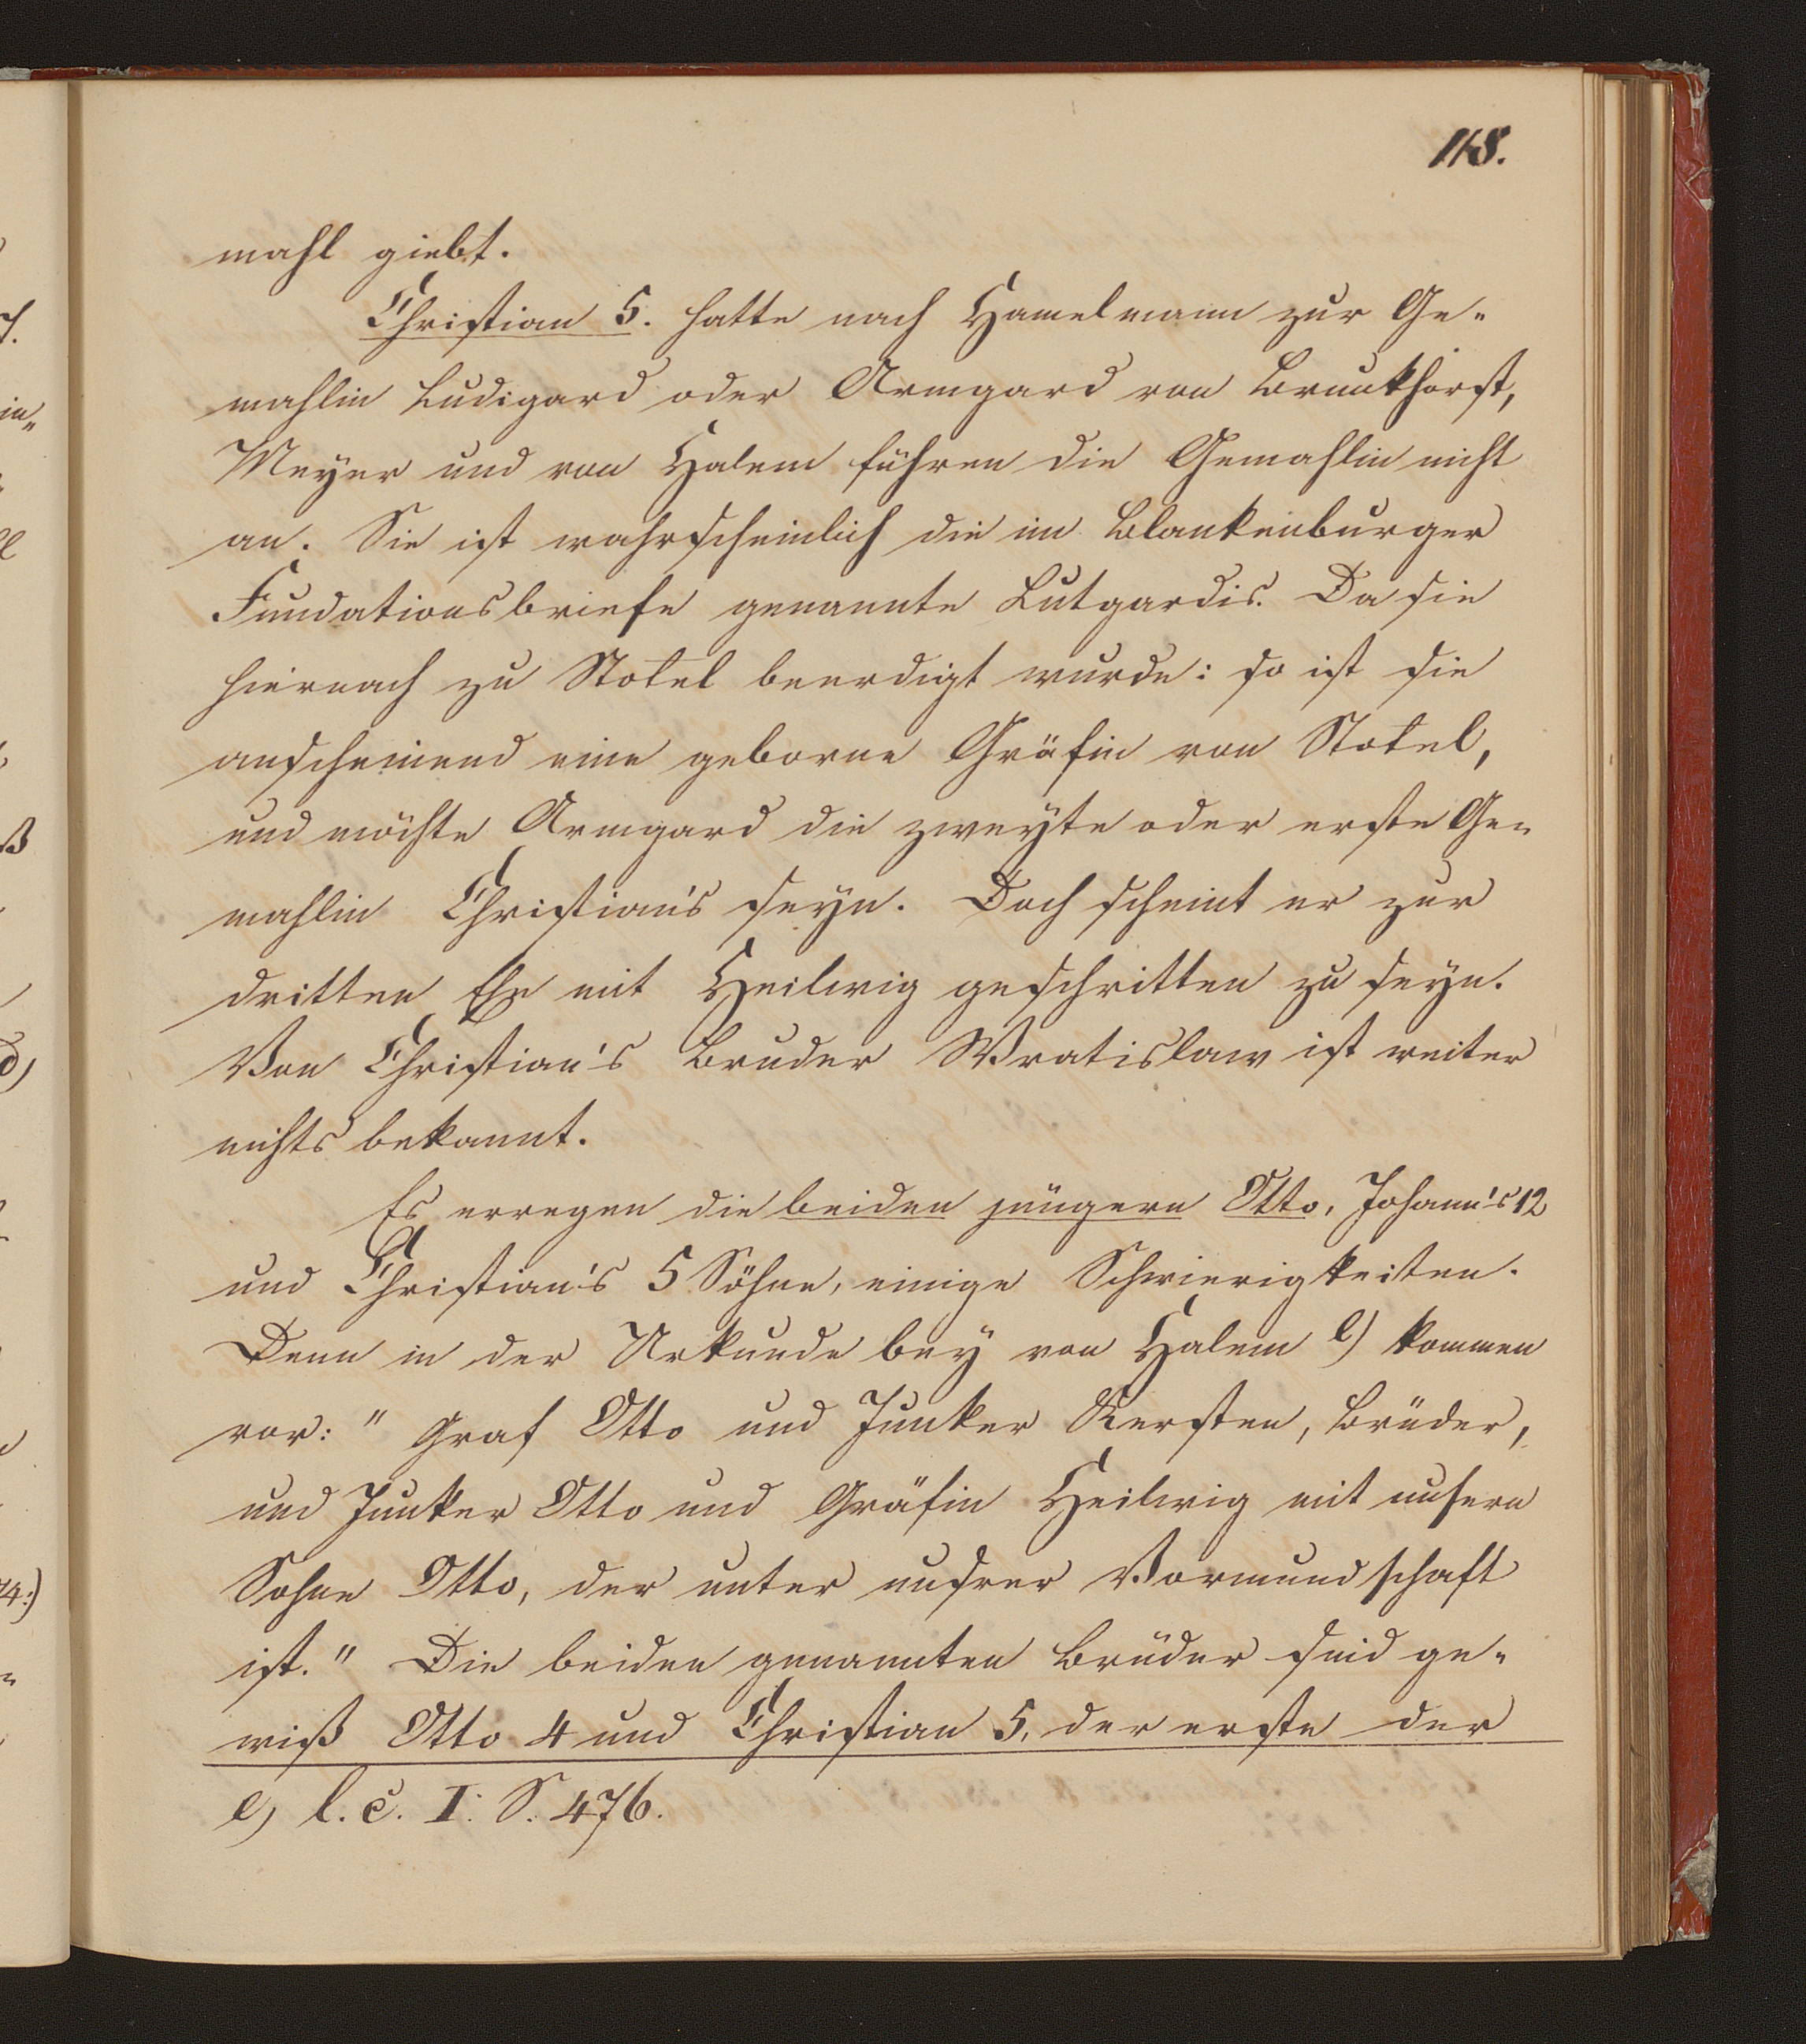 118.
mahl giebt.
Christian 5. hatte nach Hamelmann zur Ge-
mahlin Ludigard oder Armgard von Brunkhorst,
Meyer und von Halem führen die Gemahlin nicht
an. Sie ist wahrscheinlich die im Blankenburger
Fundationsbriefe genannte Lutgardis. Da sie
hiernach zu Stotel beerdigt wurde: so ist sie
anscheinend eine geborne Gräfin von Stotel,
und möchte Armgard die zweyte oder erste Ge-
mahlin Christian's seyn. Doch scheint er zur
dritten Ehe mit Heilwig geschritten zu seyn.
Von Christian's Bruder Wratislaw ist weiter
nichts bekannt.
Es erregen die beiden jüngern Otto, Johann's 12
und Christian's 5 Söhne, einige Schwierigkeiten.
Denn in der Urkunde bey von Halem e) kommen
vor: " Graf Otto und Junker Kersten, Brüder,
und Junker Otto und Gräfin Heilwig mit unsern
Sohne Otto, der unter unsrer Vormundschaft
ist." Die beiden genannten Brüder sind ge-
wiß Otto 4 und Christian 5, der erste der
e) l. c. I. S. 476.